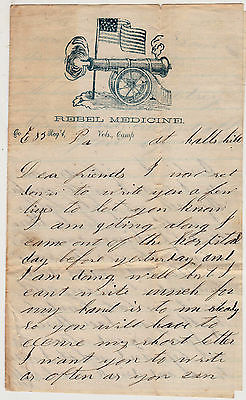 REBEL MEDICINE,
Co E 83 Reg't, Pa Vols., Camp at halls hill
Dear friends I now set
down to write you a few
lines to let you know
I am geting along I
came out of the hospital
day before yesterday and
I am doing well but I
cant write much for
my hand is to un steady
so you will have to
my short letter
I want you to write
as often as you can